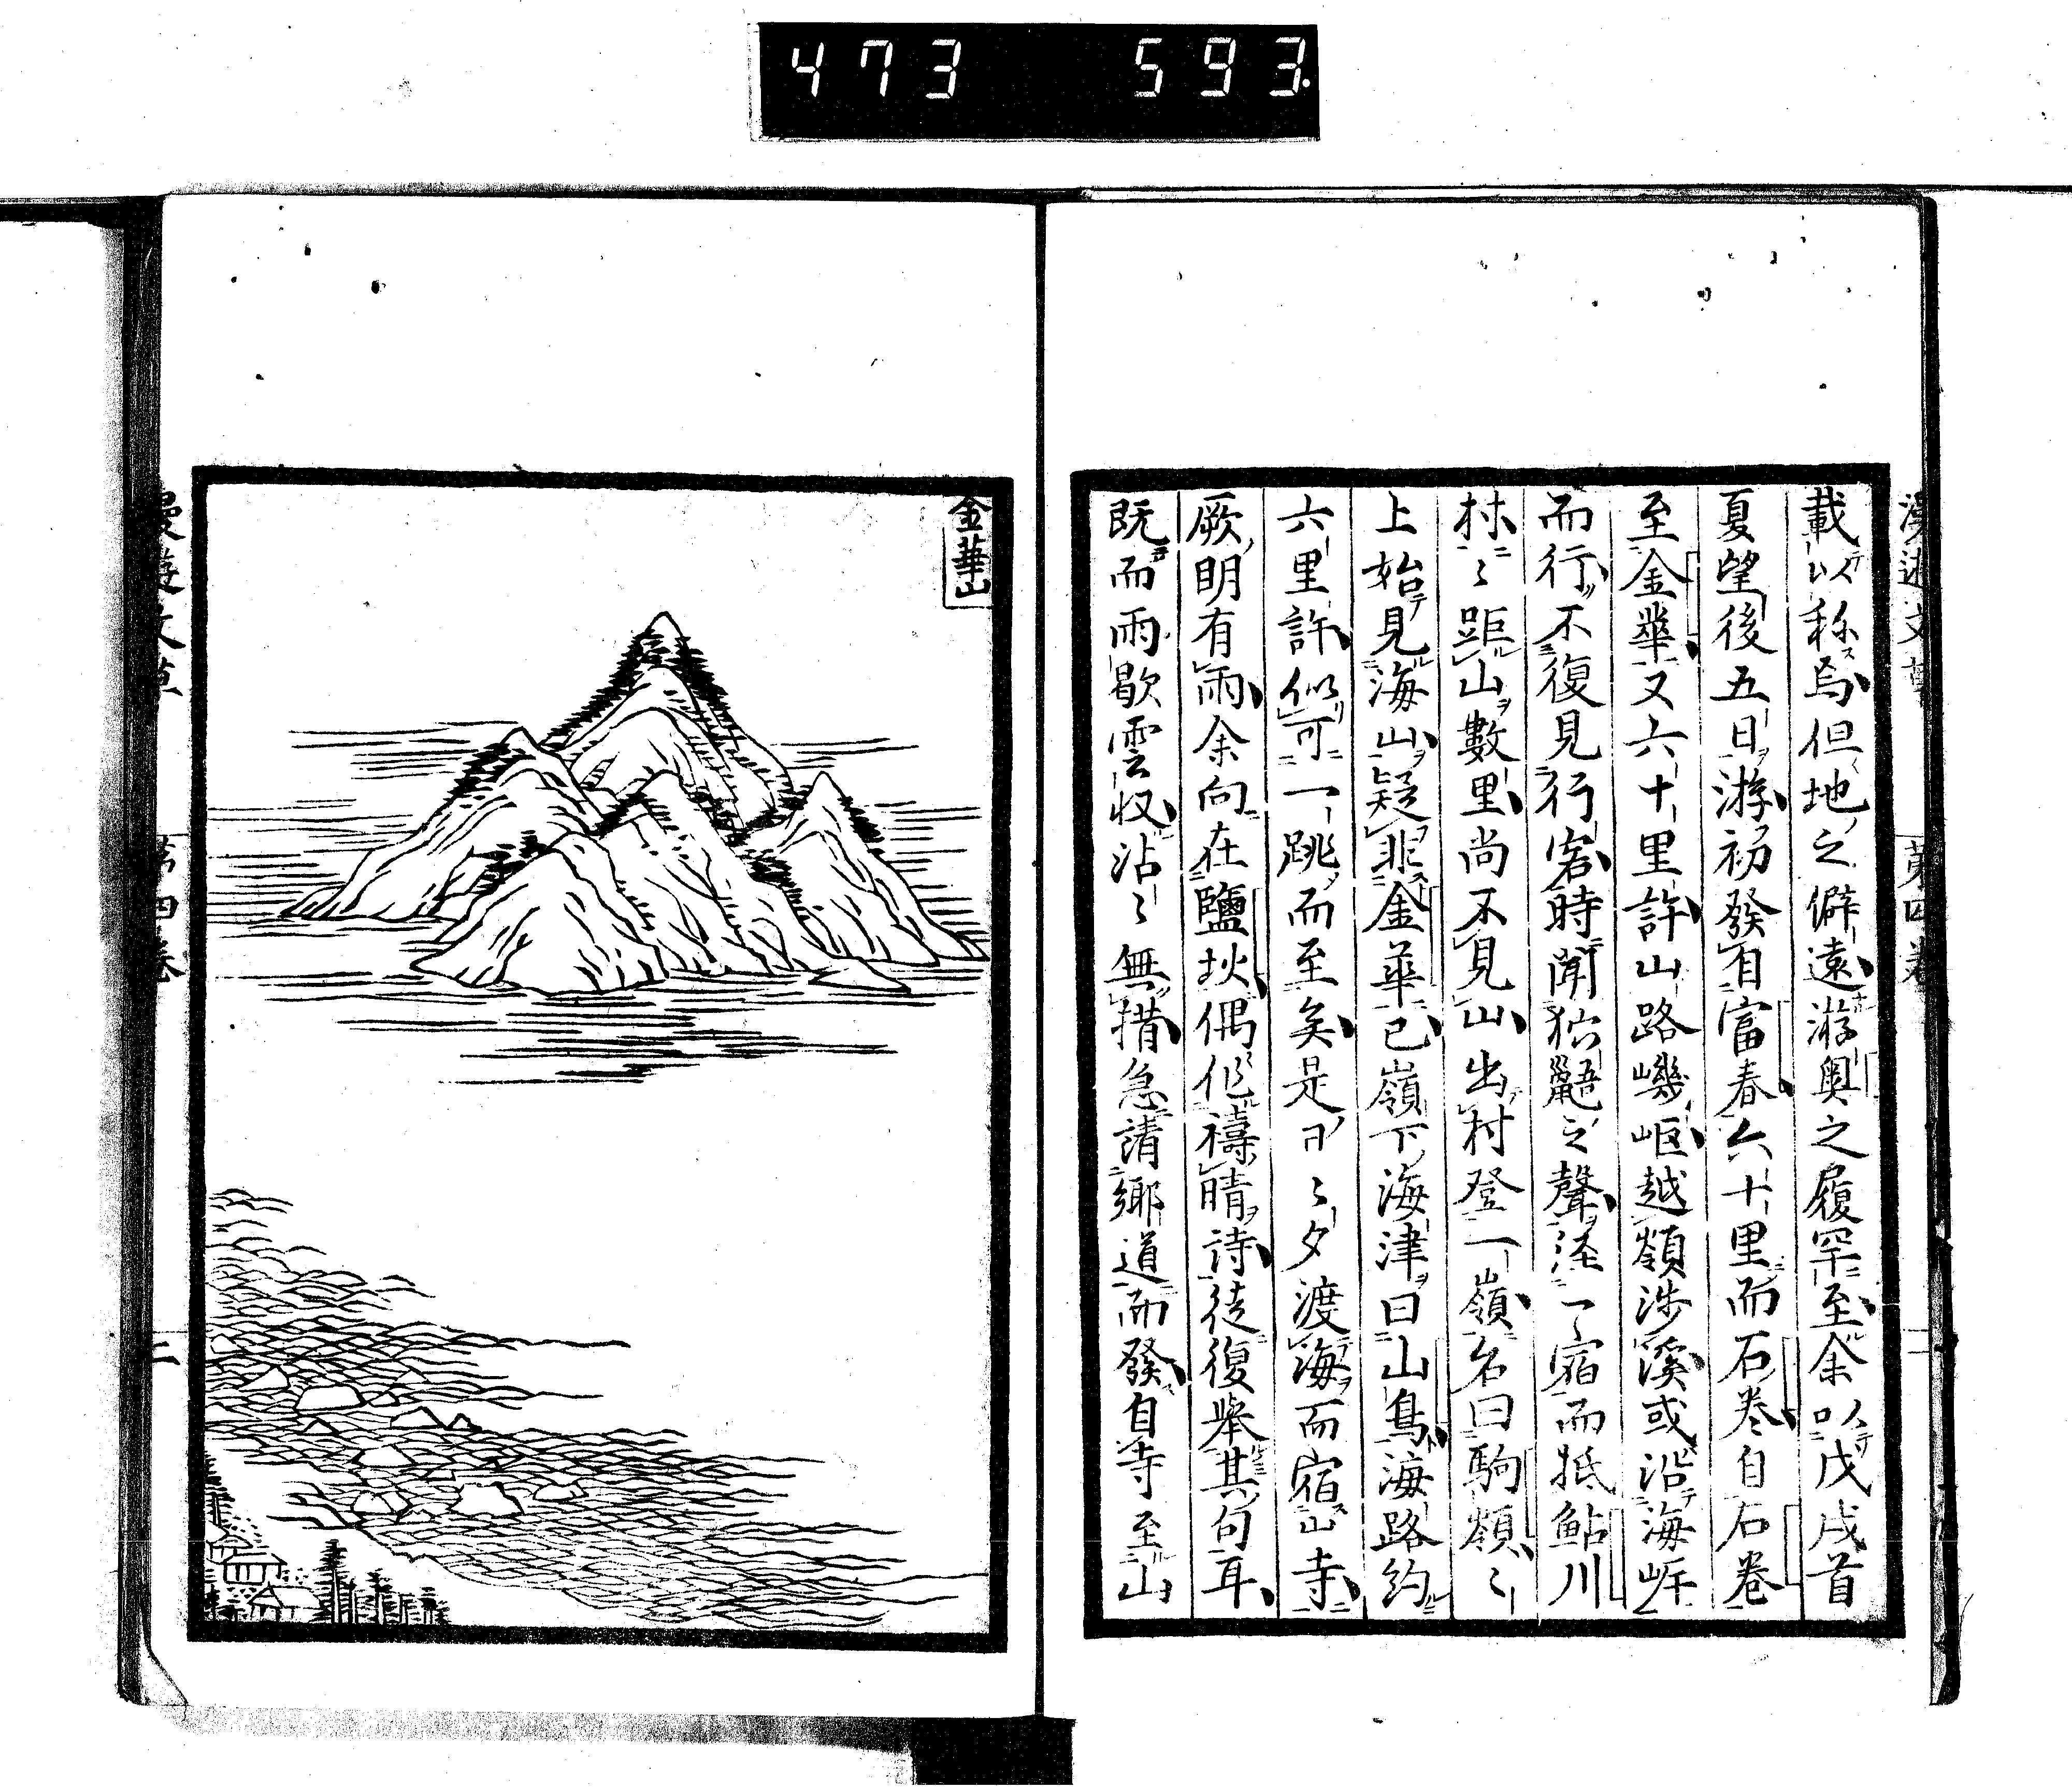 473 593
漫遊文草 第四卷
載以称焉但地之僻遠游奧之履罕至余以戊戌首
夏望後五日游初發自富春六十里而石巻自石巻
至金華又六十里許山路嶬岖越嶺渉溪或沿海岓
而行不復見行客時聞猿鼯之聲経一宿而抵鮎川
村〻距山數里尚不見山出村登一嶺名曰駒嶺〻
上始見海山疑非金華已嶺下海津曰山鳥海路約
六里許似可一跳而至矣是日〻夕渡海而宿山寺
厥明有雨余向在鹽狄偶作禱晴詩徒復擧其句耳
既而雨歇雲収沾〻無措急請鄉道而發自寺至山
金華山
漫遊文草 第四卷 二